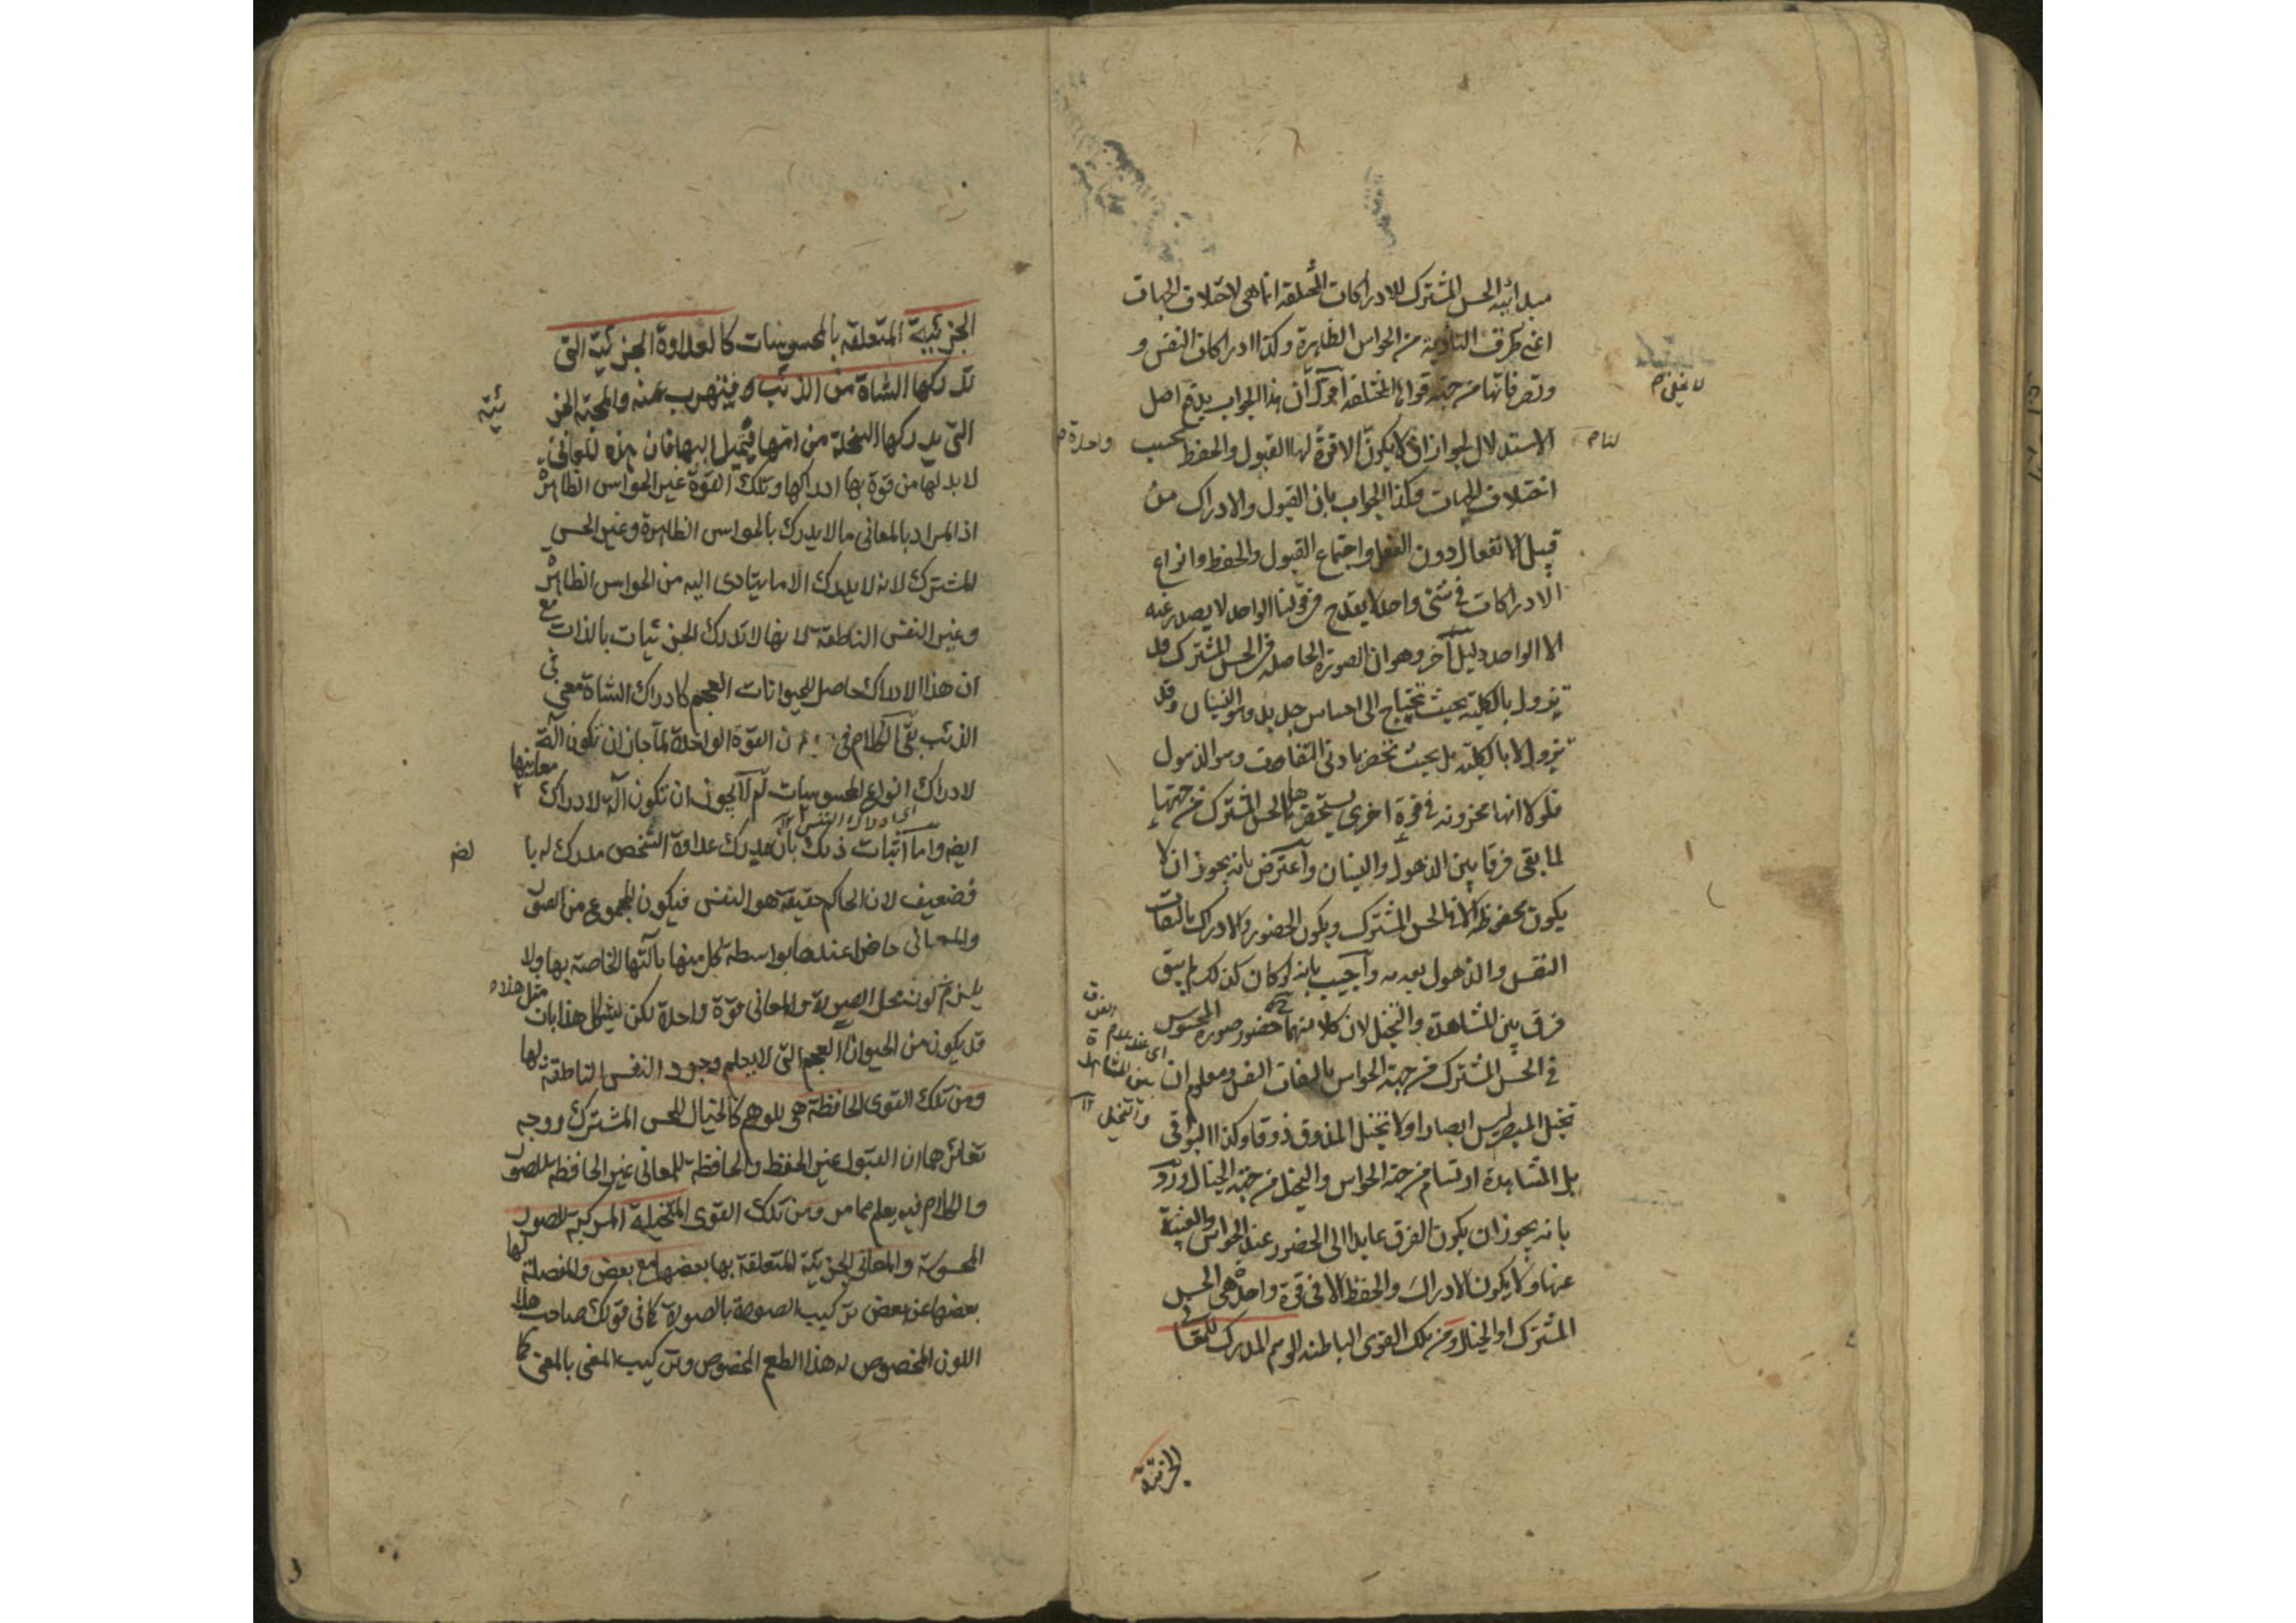 مبدائية الحس المشترك للادراكات المختلفة انما هى لاختلاف الجهات
اعنى طرق التأدية من الحواس الظاهرة وكذا ادراكات النفس و
وتصرفاتها من جهة قواها المختلفة اقول ان هذا الجواب يدفع اصل
الاستدلال لجواز ان لا يكون الا قوة لها القبول والحفظ بحسب
واحدة
لنا
اختلاف الجهات وكذا الجواب بان القبول والادراك من
قبيل الانفعال دون الفعل واجتماع القبول والحفظ وانواع
الادراكات فى شئ واحد لا يقدح فى قولنا الواحد لا يصدر عنه
الا الواحد دليل آخر وهو ان الصورة الحاصلة فى الحس المشترك قد
تزول بالكلية بحيث تحتاج الى احساس جديد وهو النسيان وقد
تزول لا بالكلية بل بحيث تحضر بادنى التفات وهو الذهول
فلولا انها مخزونة فى قوة اخرى يستحضرها الحس المشترك من جهتها
لما بقى فرقا بين الذهول والنسيان واعترض بانه يجوز ان لا
يكون محفوظة الا فى الحس المشترك ويكون الحضور والادراك بالتفات
النفس والذهول بعدمه واجيب بانه لو كان كذلك لم يبق
فرق بين المشاهدة والتخيل لان كلا منهما حضور صورة المحسوس
فى الحس المشترك من جهة الحواس بالتفات النفس ومعلوم ان
الفرق
اى عند عدم
بين المشاهدة
والتخيل
تخيل المبصر ليس ابصارا ولا تخيل المذوق ذوقا وكذا البواقى
بل المشاهدة ارتسام من جهة الحواس والتخيل من جهة الخيال ورد
بانه يجوز ان يكون الفرق عايدا الى الحضور عند الحواس والغيبة
عنها ولا يكون الادراك والحفظ الا فى قوة واحدة هى الحس
المشترك او الخيال ومن تلك القوى الباطنة الوهم المدرك للمعانى
الجزئية
الجزئية المتعلقة بالمحسوسات كالعداوة الجزئية التى
تدركها الشاة من الذئب فيتهرب عنه والمحبة الجز
ئية
التى يدركها السخلة من امها فتميل اليها فان هذه المعانى
لابد لها من قوة بها ادراكها وتلك القوة غير الحواس الظاهرة
اذ المراد بالمعانى ما لا يدرك بالحواس الظاهرة وغير الحس
المشترك لانه لا يدرك الا ما يتادى اليه من الحواس الظاهرة
وغير النفس الناطقة لانها لا تدرك الجزئيات بالذات مع
ان هذا الادراك حاصل للحيوانات العجم كادراك الشاة معنى فى
الذئب بقى الكلام فى ان القوة الواحدة لما جاز ان تكون آلة
لادراك انواع المحسوسات لم لا يجوز ان تكون آلة لادراك معانيها
ايضا واما اثبات ذلك بان مدرك عداوة الشخص مدرك له با
لضر
فضعيف لان الحاكم حقيقة هو النفس فيكون المجموع من الصور
والمعانى حاضرا عندها بواسطة كل منها بآلتها الخاصة بها ولا
يلزم كون محل الصورة والمعانى قوة واحدة لكن يشكل هذا بان مثل هذا
قد يكون من الحيوان العجم التى لا يعلم وجود النفس الناطقة لها
ومن تلك القوى الحافظة هى للوهم كالخيال للحس المشترك ووجه
تغايرهما ان القبول غير الحفظ والحافظة للمعانى غير الحافظة للصور
والكلام فيه يعلم مما مر ومن تلك القوى المتخيلة المركبة للصور
المحسوسة والمعانى الجزئية المتعلقة بها بعضها مع بعض والمفصلة لها
بعضها عن بعض تركيب الصورة بالصورة كما فى قولك صاحب هذا
اللون المخصوص له هذا الطعم المخصوص وتركيب المعنى بالمعنى كما